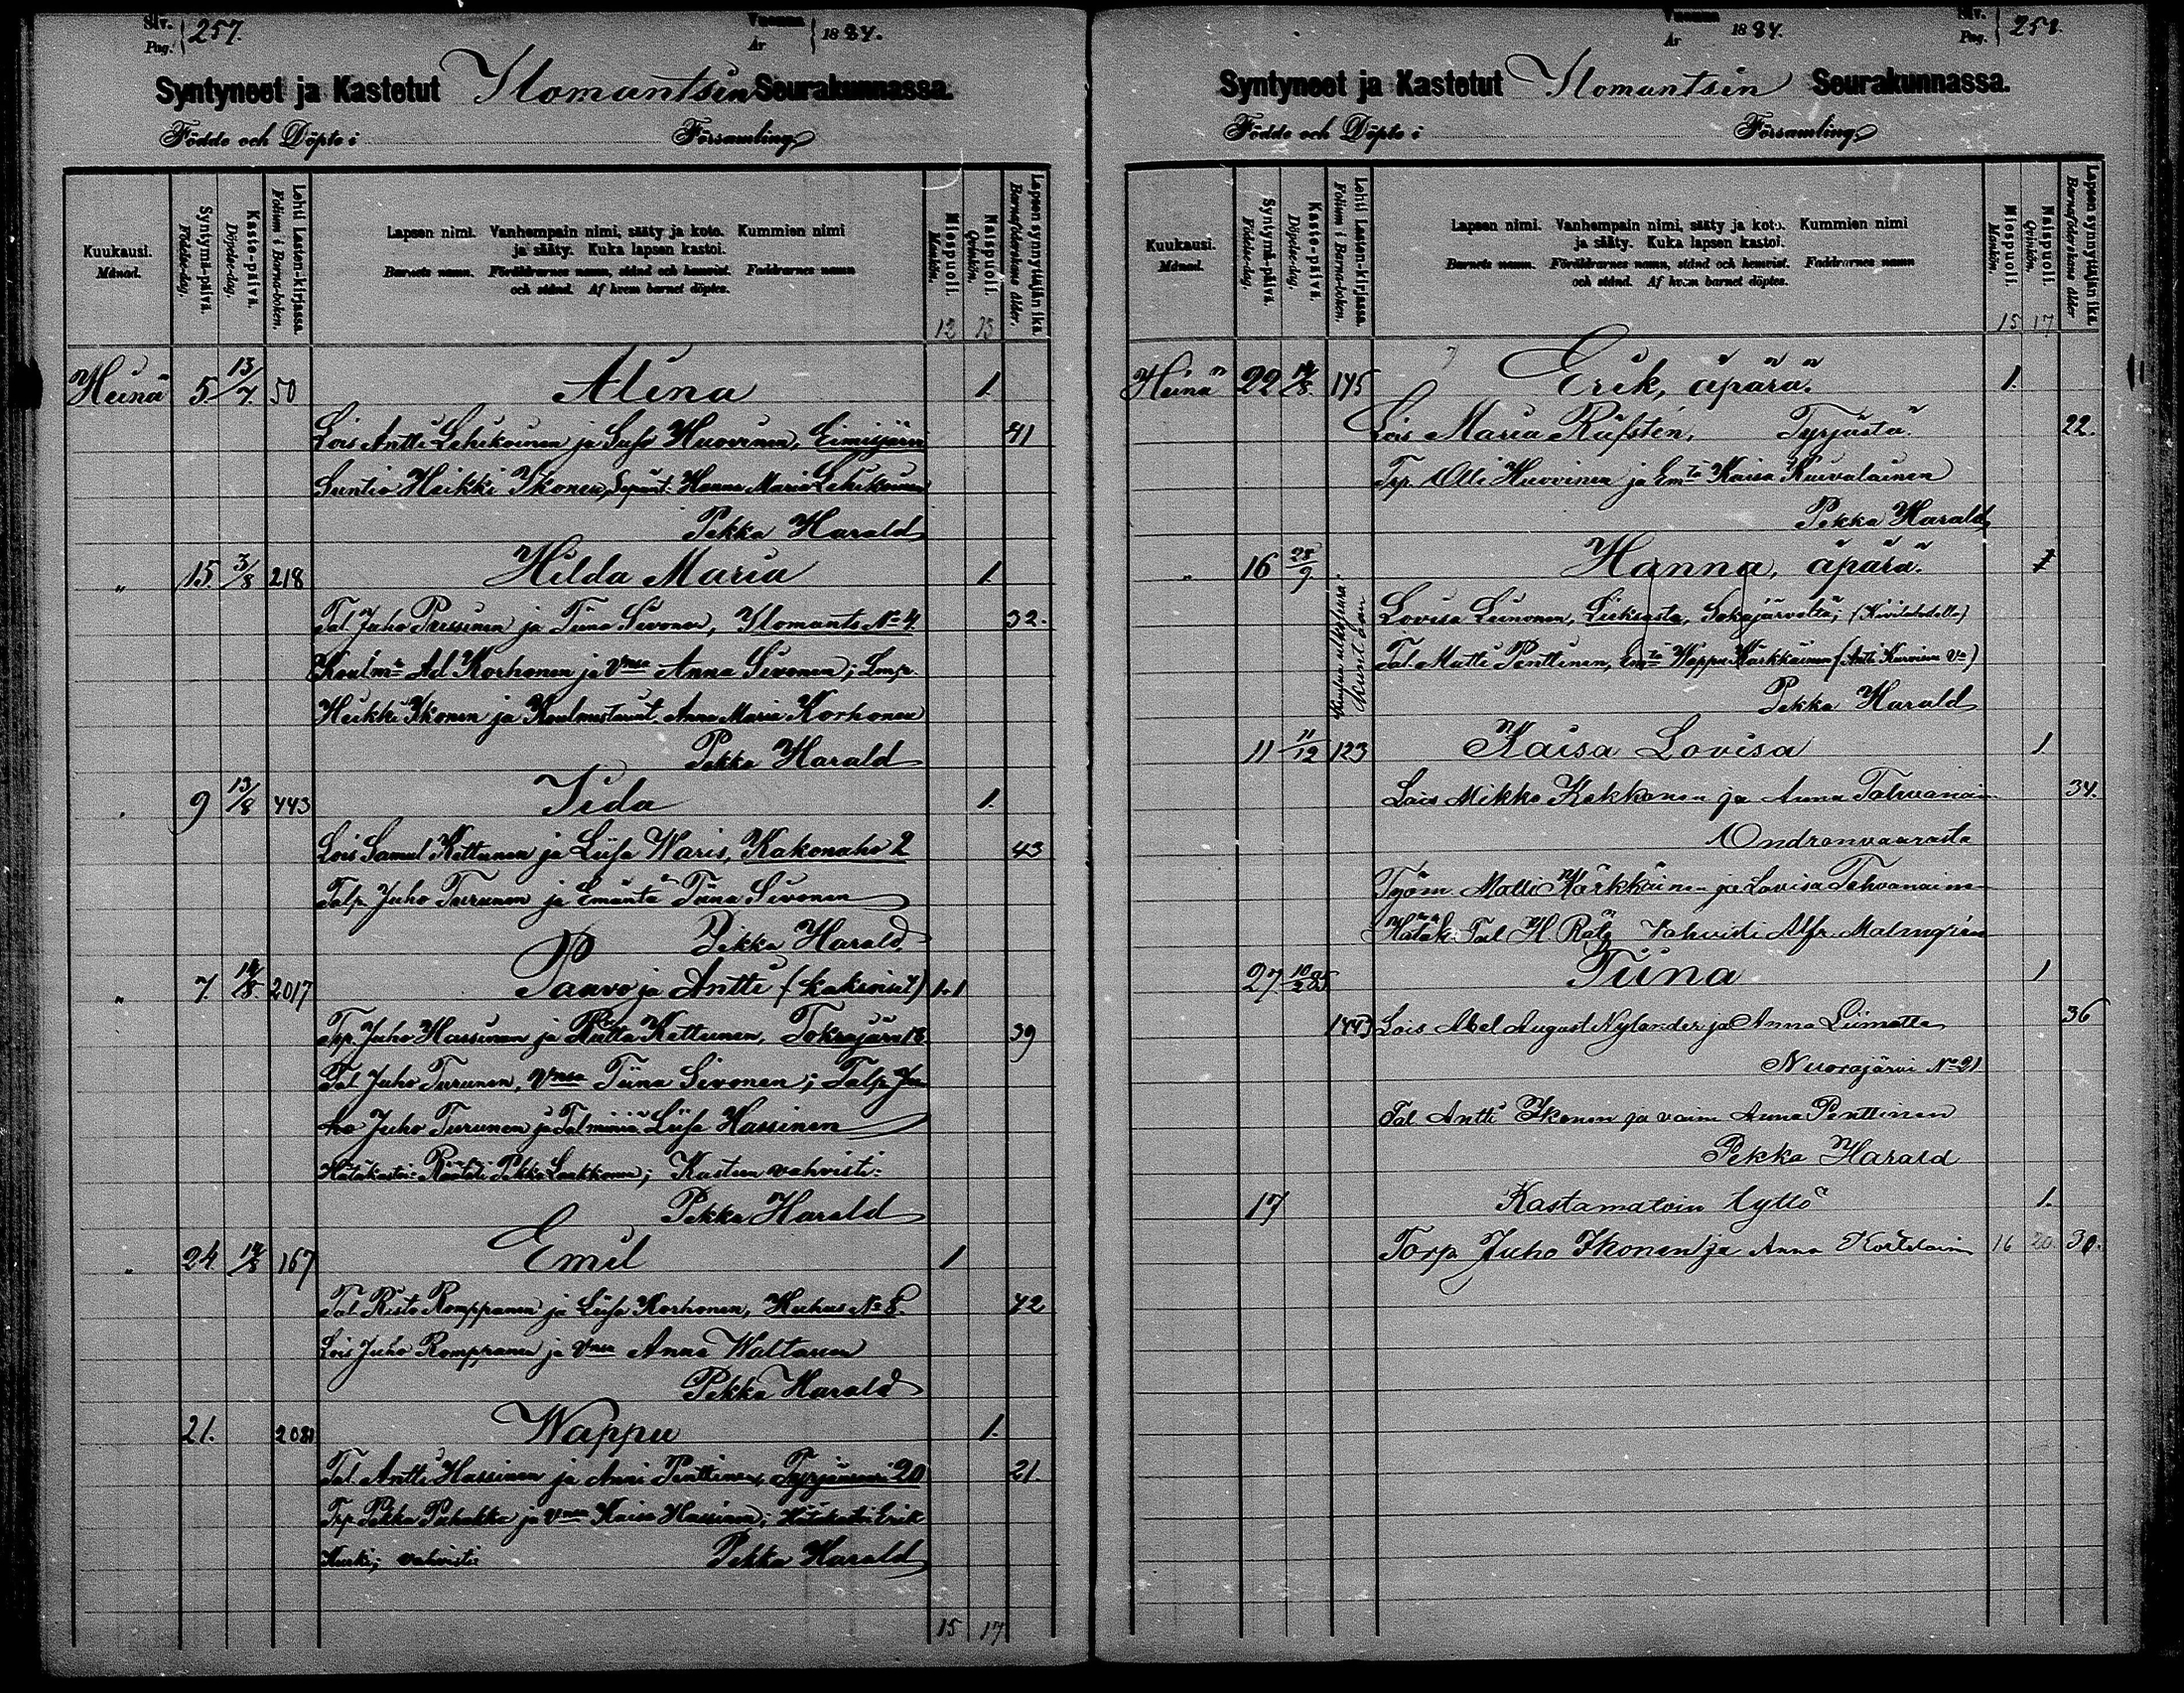 Siv. Pag. 257. Vuonna År 1884.
Syntyneet ja Kastetut Ilomantsin Seurakunnassa.
Födde och Döpte i Församling
Kuukausi. Månad.
Syntymä-päivä. Födelse-dag.
Kaste-päivä. Döpelse-dag.
Lehti Lasten-kirjassa. Folium i Barna-boken.
Lapsen nimi. Vanhempain nimi, sääty ja koto. Kummien nimi
ja sääty. Kuka lapsen kastoi.
Barnets namn. Föräldrarnes namn, stånd och hemvist. Faddrarnes namn
och stånd. Af hvem barnet döptes.
Miespuoli. Mankön.
Naispuoli. Qvinkön.
Lapsen synnyttäjän ikä. Barnaföderskans ålder.
12 13
Heinä 5. 13/7. 50 Alina 1.
Lois Antti Lehikoinen ja Huovinen, 41
Suntio Heikki Ikonen, Hanna Maria Lehikoinen
Pekka Harald
" 15. 3/8 218 Hilda Maria 1.
Tal. Juho Parssinen ja Tiina Sivonen, Ilomants No 4 32.
Ad. Korhonen ja Vmsa Anna Sivonen;
Heikki Ikonen ja Anna Maria Korhonen
Pekka Harald
" 9 13/8 443 Iida 1.
Lois Samul Kettunen ja Liisa Waris, Kakonaho 2 43
Talp. Juho Turunen ja Emäntä Tiina Sivonen
Pekka Harald
" 7. 14/8. 2017 Paavo ja Antti (kaksoiset) 1.1
Trp. Juho Hassinen ja Riitta Kettunen, Tokrajärvi 18 39
Tal. Juho Turunen, Vmsa Tiina Sivonen; Talp. Ju
ho Juho Turunen ja Tal miniä Liisa Hassinen
Hätäkastoi Räätäli Pekka Laukkanen; Kasteen vahvisti:
Pekka Harald
" 24 14/8 167 Emil 1
Tal. Risto Romppanen ja Liisa Korhonen, Huhus No 8. 42
Lois Juho Romppanen ja Vmsa Anna Waltanen
Pekka Harald
21. 2081 Wappu 1.
Tal. Antti Hassinen ja Anni Penttinen, 20 21.
Trp. Pekka Puhakka ja Vmsa Kaisa Hassinen; Hätäkastoi Erik
Kurki; vahvisti Pekka Harald
15 17
Vuonna År 1884. Siv. Pag. 258.
Syntyneet ja Kastetut Ilomantsin Seurakunnassa.
Födde och Döpte i Församling
Kuukausi. Månad.
Syntymä-päivä. Födelse-dag.
Kaste-päivä. Döpelse-dag.
Lehti Lasten-kirjassa. Folium i Barna-boken.
Lapsen nimi. Vanhempain nimi, sääty ja koto. Kummien nimi
ja sääty. Kuka lapsen kastoi.
Barnets namn. Föräldrarnes namn, stånd och hemvist. Faddrarnes namn
och stånd. Af hvem barnet döptes.
Miespuoli. Mankön.
Naispuoli. Qvinkön.
Lapsen synnyttäjän ikä. Barnaföderskans ålder
15 17
Heinä 22 14/8. 175 Erik, äpärä. 1.
Lois Maria Räfsten, Tyrjästä. 22.
Trp. Olli Huovinen ja Emtä Kaisa Kuivalainen
Pekka Harald
" 16 28/9 Hanna, äpärä. 1
Lovisa Leinonen, Lieksasta, Sokojärveltä;
Tal. Matti Penttinen, Emtä Wappu Kärkkäinen
Pekka Harald
11 11/12 123 Kaisa Lovisa 1
Lois Mikko Kekkonen ja Anna Tahvanai 34.
Ondronvaarasta
Työm. Matti Kärkkäinen ja Lovisa Tahvanainen
Hätäk. Tal H. Räty Vahvisti Alfr. Malmgren
27 10/2 85 Tiina 1
1443 Lois Abel August Nylander ja Anna Liimatta 36
Nuorajärvi No 21
Tal Antti Ikonen ja vaim Anna Penttinen
Pekka Harald
17 Kastamatoin tyttö 1.
Torp. Juho Ikonen ja Anna 16 20. 30.